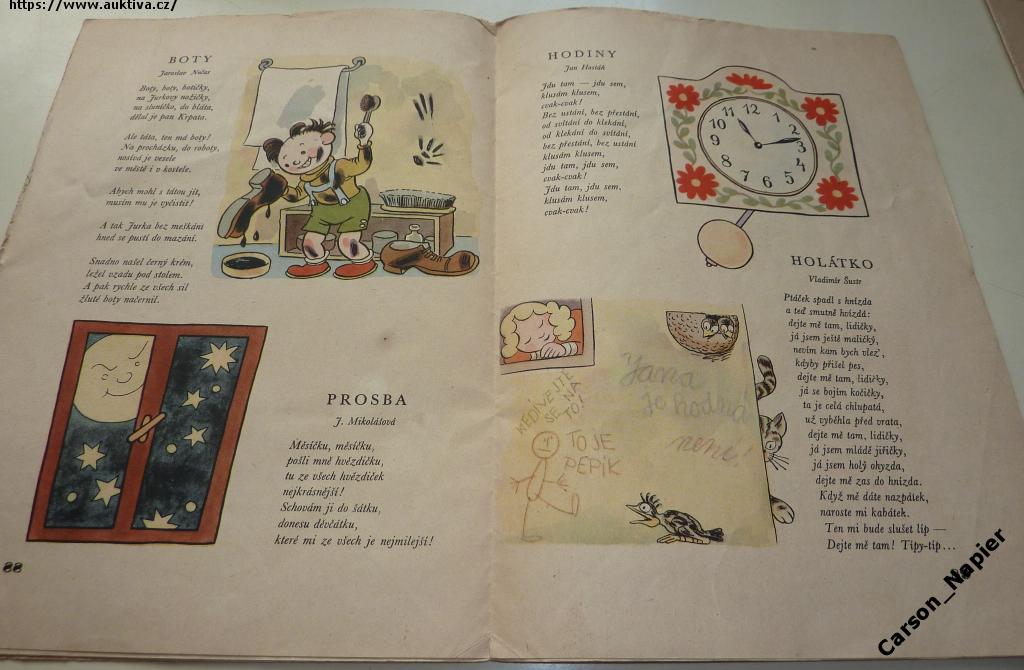 https://www.auktiva.cz/
BOTY
Jaroslav Nečas
Boty, boty, botičky,
na Jurkovy nožičky,
na sluníčko, do bláta,
dělal je pan Krpata.
Ale táta, ten má boty!
Na procházku, do roboty,
nosívá je vesele
ve městě i v kostele.
Abych mohl s tátou jít,
musím mu je vyčistit!
A tak Jurka bez meškání
hned se pustí do mazání.
Snadno našel černý krém,
ležel vzadu pod stolem.
A pak rychle ze všech sil
žluté boty načernil.
PROSBA
J. Mikolášová
Měsíčku, měsíčku,
pošli mně hvězdičku,
tu ze všech hvězdiček
nejkrásnější!
Schovám ji do šátku,
donesu děvčátku,
které mi ze všech je nejmilejší!
88
HODINY
Jan Hostáň
Jdu tam — jdu sem,
klusám klusem,
cvak-cvak!
Bez ustání, bez přestání,
od svítání do klekání,
od klekání do svítání,
bez přestání, bez ustání
klusám klusem,
jdu tam, jdu sem,
cvak-cvak!
Jdu tam, jdu sem,
klusám klusem,
cvak-cvak!
11 12
10 2
9 3
8 4
7 6 5
HOLÁTKO
Vladimír Šustr
Ptáček spadl s hnízda
a teď smutně hvízdá:
dejte mě tam, lidičky,
já jsem ještě maličký,
nevím kam bych vlez',
kdyby přišel pes,
dejte mě tam, lidičky,
já se bojím kočičky,
ta je celá chlupatá,
už vyběhla před vrata,
dejte mě tam, lidičky,
já jsem mládě jiřičky,
já jsem holý ohyzda,
dejte mě zas do hnízda.
Když mě dáte nazpátek,
naroste mi kabátek.
Ten mi bude slušet líp —
Dejte mě tam! Típy-típ...
NEDÍVEJTE
SE NA
TO!
TO JE
PEPÍK
Jana
je hodná
není!
Carson_Napier